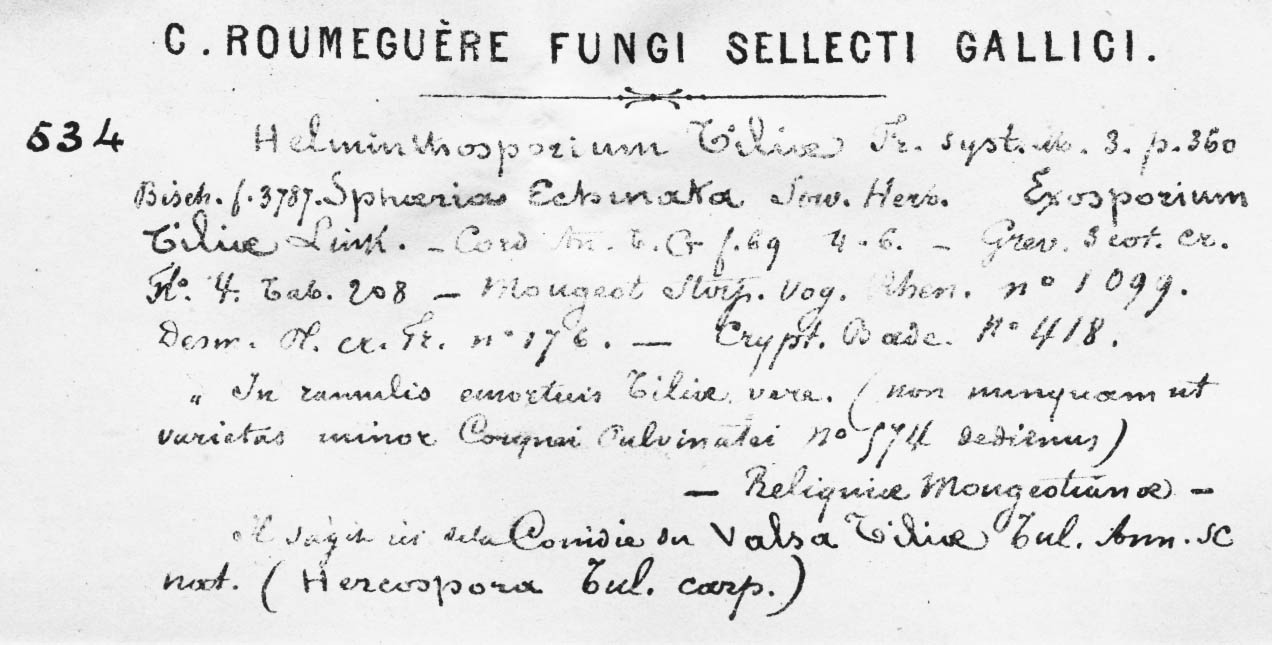 C. ROUMEGUÈRE FUNGI SELLECTI GALLICI.
534 Helminthosporium Tiliæ Fr. syst. M. 3. p. 360
Bisch. f. 3787. Sphæria Echinata Sow. Herb. Exosporium
Tiliæ Link. – Cord An. t. G f. 69 4-6. – Grev. Scot. cr.
Fl. 4. Tab. 208 – Mougeot Stirp. Vog. Rhen. nº 1099.
Desm. Pl. cr. Fr. nº 176. – Crypt. Bade. Nº 418.
„ In ramulis emortuis Tiliæ, vere. (non nunquam ut
varietas minor Corynei Pulvinatei Nº 574 dedimus)
– Reliquiæ Mougeotianæ –
Il s'agit ici de la Conidie du Valsa Tiliæ Tul. Ann. SC
nat. (Hercospora Tul. carp.)